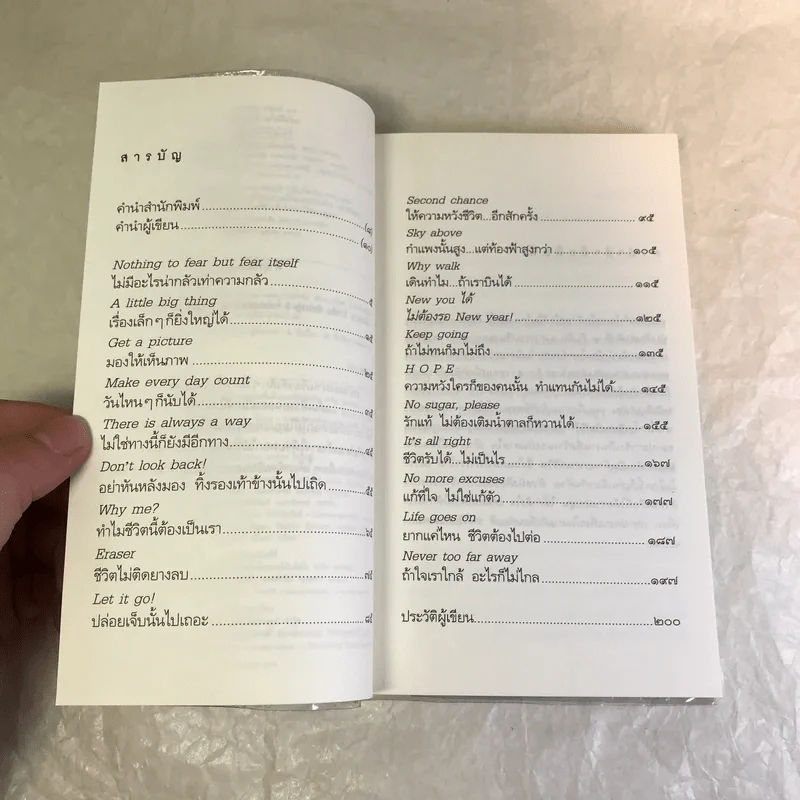 สารบัญ
คำนำสำนักพิมพ์ (๘)
คำนำผู้เขียน (๑๐)
Nothing to fear but fear itself
ไม่มีอะไรน่ากลัวเท่าความกลัว ๕
A little big thing
เรื่องเล็กๆ ก็ยิ่งใหญ่ได้ ๑๕
Get a picture
มองให้เห็นภาพ ๒๕
Make every day count
วันไหนๆ ก็นับได้ ๓๕
There is always a way
ไม่ใช่ทางนี้ก็ยังมีอีกทาง ๔๕
Don't look back!
อย่าหันหลังมอง ทิ้งรองเท้าข้างนั้นไปเถิด ๕๕
Why me?
ทำไมชีวิตนี้ต้องเป็นเรา ๖๕
Eraser
ชีวิตไม่ติดยางลบ ๗๕
Let it go!
ปล่อยเจ็บนั้นไปเถอะ ๘๕
Second chance
ให้ความหวังชีวิต...อีกสักครั้ง ๙๕
Sky above
กำแพงนั้นสูง...แต่ท้องฟ้าสูงกว่า ๑๐๕
Why walk
เดินทำไม...ถ้าเราบินได้ ๑๑๕
New you ได้
ไม่ต้องรอ New year! ๑๒๕
Keep going
ถ้าไม่ทนก็มาไม่ถึง ๑๓๕
HOPE
ความหวังใครก็ของคนนั้น ทำแทนกันไม่ได้ ๑๔๕
No sugar, please
รักแท้ ไม่ต้องเติมน้ำตาลก็หวานได้ ๑๕๕
It's all right
ชีวิตรับได้...ไม่เป็นไร ๑๖๗
No more excuses
แก้ที่ใจ ไม่ใช่แก้ตัว ๑๗๗
Life goes on
ยากแค่ไหน ชีวิตต้องไปต่อ ๑๘๗
Never too far away
ถ้าใจเราใกล้ อะไรก็ไม่ไกล ๑๙๗
ประวัติผู้เขียน ๒๐๐